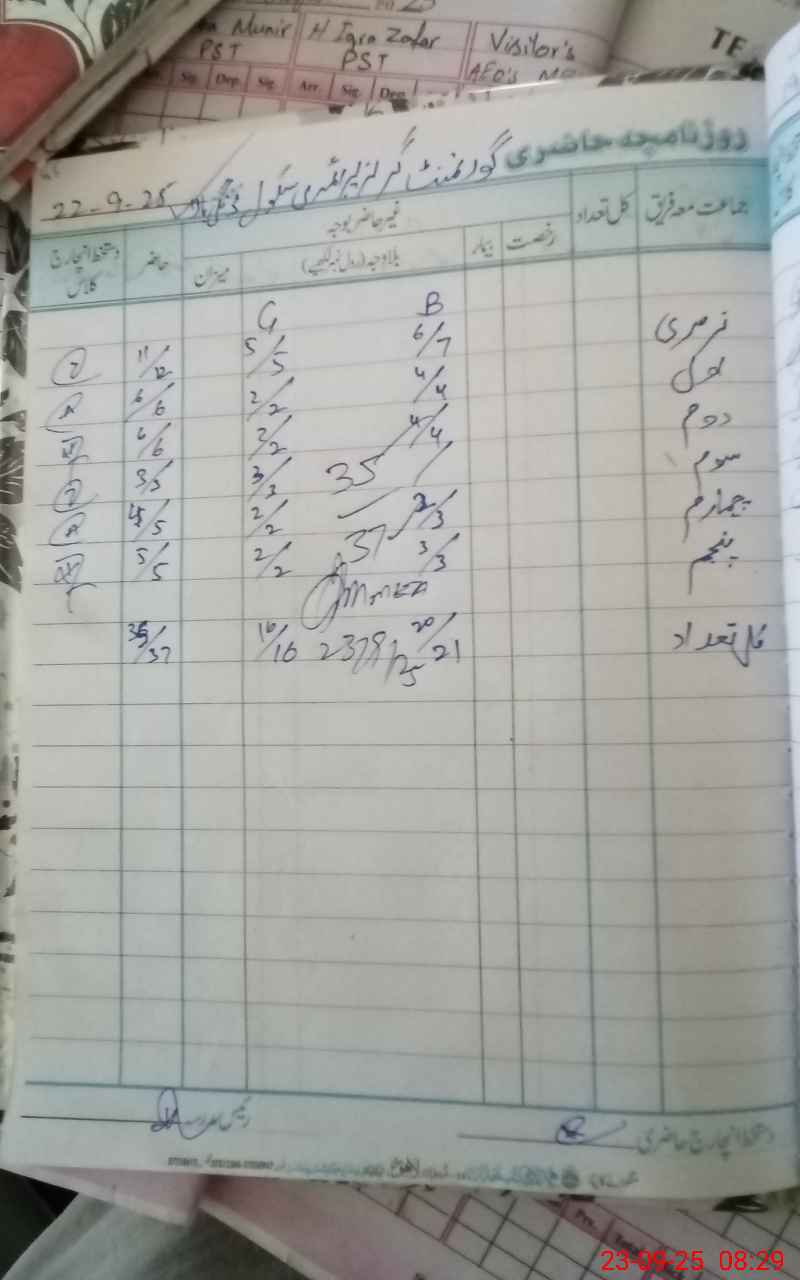 Munir H Iqra Zafar Visitor's TE
PST PST AEO's
Sig. Dep. Sig. Arr. Sig. Dep.
روزنامچہ حاضری گورنمنٹ گرلز پرائمری سکول
22-9-25
جماعت معہ فریق کل تعداد غیر حاضر بوجہ حاضر دستخط انچارج کلاس
رخصت بیمار بلاوجہ (رول نمبر لکھیے) میزان
B G
نرسری 6/7 5/5 11/12
اول 4/4 2/2 6/6
دوم 4/4 2/2 6/6
سوم / 35 3/3 3/3
چہارم 2/3 2/2 4/5
37
پنجم 3/3 2/2 5/5
کل تعداد 20/21 16/16 /37
دستخط انچارج حاضری رئیس مدرسہ
23-09-25 08:29